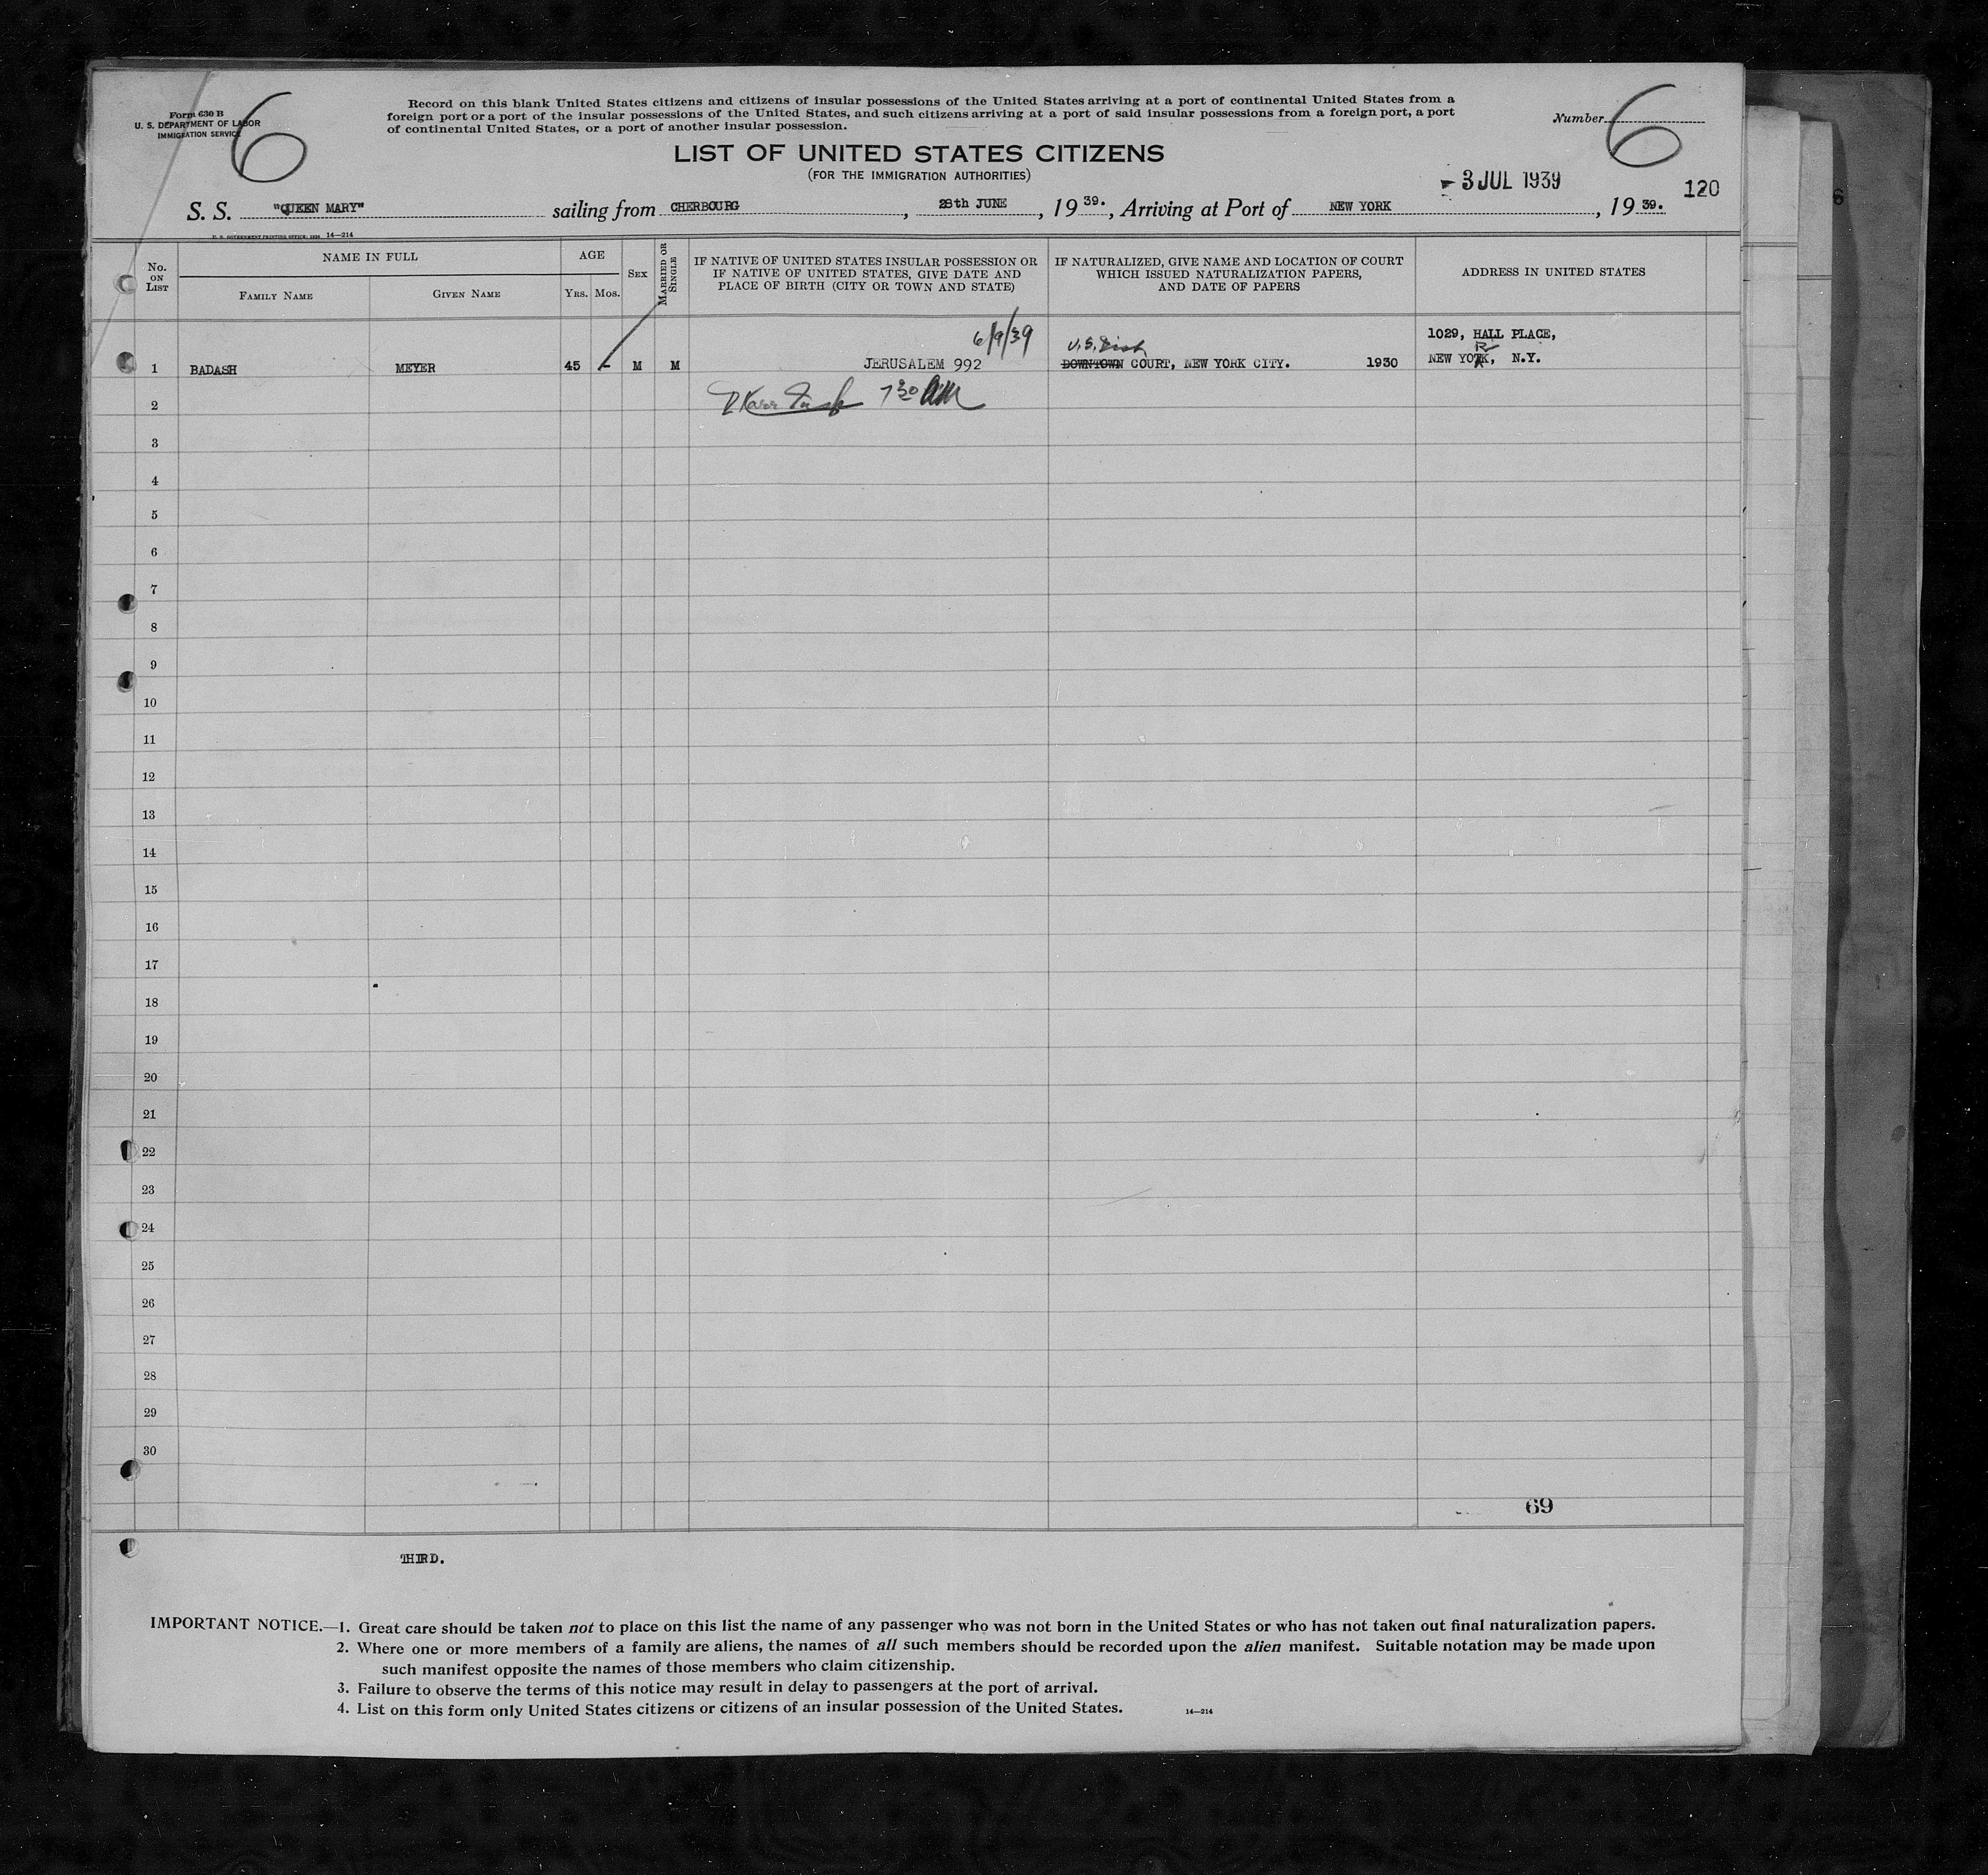 Form 630 B
U. S. DEPARTMENT OF LABOR
IMMIGRATION SERVICE
6
Record on this blank United States citizens and citizens of insular possessions of the United States arriving at a port of continental United States from a
foreign port or a port of the insular possessions of the United States, and such citizens arriving at a port of said insular possessions from a foreign port, a port
of continental United States, or a port of another insular possession.
Number 6
LIST OF UNITED STATES CITIZENS
(FOR THE IMMIGRATION AUTHORITIES)
3 JUL 1939
120
S. S. "QUEEN MARY" sailing from CHERBOURG, 28th JUNE, 19 39., Arriving at Port of NEW YORK, 19 39.
14—214
No. ON LIST
NAME IN FULL
FAMILY NAME
GIVEN NAME
AGE
YRS. MOS.
SEX
MARRIED OR SINGLE
IF NATIVE OF UNITED STATES INSULAR POSSESSION OR
IF NATIVE OF UNITED STATES, GIVE DATE AND
PLACE OF BIRTH (CITY OR TOWN AND STATE)
IF NATURALIZED, GIVE NAME AND LOCATION OF COURT
WHICH ISSUED NATURALIZATION PAPERS,
AND DATE OF PAPERS
ADDRESS IN UNITED STATES
6/9/39
U.S. Dist
1029, HALL PLACE,
1 BADASH MEYER 45 - M M JERUSALEM 992 DOWNTOWN COURT, NEW YORK CITY. 1930 NEW YORK, N.Y.
2 7 30 AM
3
4
5
6
7
8
9
10
11
12
13
14
15
16
17
18
19
20
21
22
23
24
25
26
27
28
29
30
69
THIRD.
IMPORTANT NOTICE.—1. Great care should be taken not to place on this list the name of any passenger who was not born in the United States or who has not taken out final naturalization papers.
2. Where one or more members of a family are aliens, the names of all such members should be recorded upon the alien manifest. Suitable notation may be made upon
such manifest opposite the names of those members who claim citizenship.
3. Failure to observe the terms of this notice may result in delay to passengers at the port of arrival.
4. List on this form only United States citizens or citizens of an insular possession of the United States.
14—214